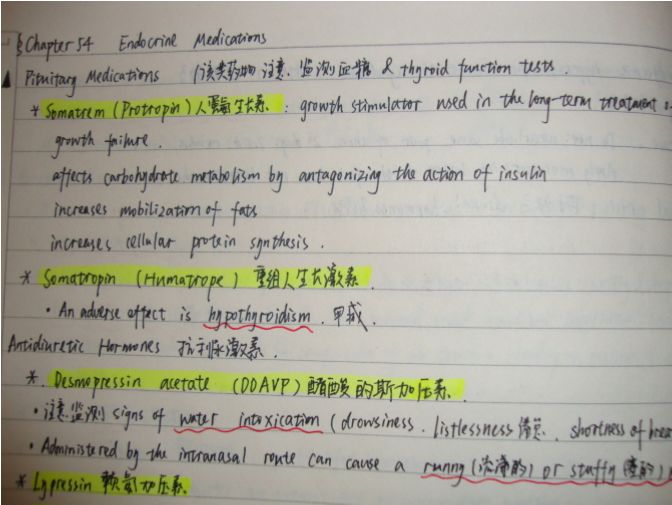 § Chapter 54 Endocrine Medications
▲ Pituitary Medications /该类药物 注意. 监测血糖 & thyroid function tests.
* Somatrem (Protropin) 人 生长素: growth stimulator used in the long-term treatment o
growth failure.
affects carbohydrate metabolism by antagonizing the action of insulin
increases mobilization of fats
increases cellular protein synthesis.
* Somatropin (Humatrope) 重组人生长激素.
• An adverse effect is hypothyroidism. 甲减.
Antidiuretic Hormones 抗利尿激素.
* Desmopressin acetate (DDAVP) 醋酸的斯加压素.
• 注意监测 signs of water intoxication (drowsiness. listlessness 倦怠. shortness of brea
• Administered by the intranasal route can cause a runny (流涕的) or stuffy (塞的)
* Lypressin 赖氨加压素